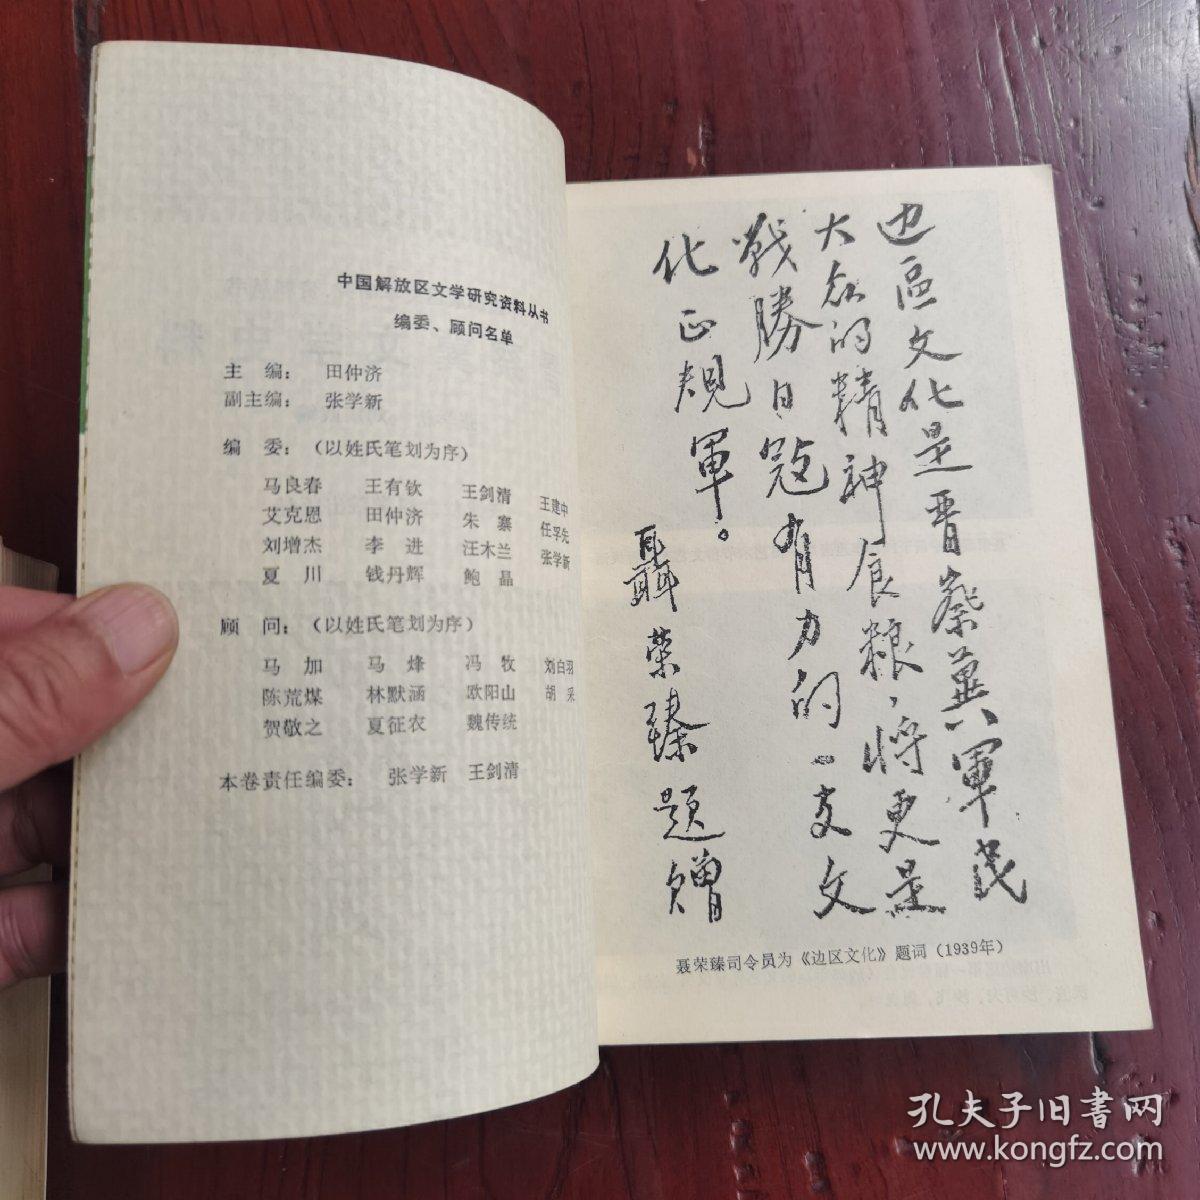 中国解放区文学研究资料丛书
编委、顾问名单
主 编： 田仲济
副主编： 张学新
编 委：（以姓氏笔划为序）
马良春 王有钦 王剑清 王建中
艾克恩 田仲济 朱 寨 任孚先
刘增杰 李 进 汪木兰 张学新
夏 川 钱丹辉 鲍 晶
顾 问：（以姓氏笔划为序）
马 加 马 烽 冯 牧 刘白羽
陈荒煤 林默涵 欧阳山 胡 采
贺敬之 夏征农 魏传统
本卷责任编委： 张学新 王剑清
边區文化是晋察冀軍民
大众的精神食粮，将更是
戰勝日寇有力的一支文
化正規軍。
聶荣臻题赠
聂荣臻司令员为《边区文化》题词（1939年）
孔夫子旧书网
www.kongfz.com